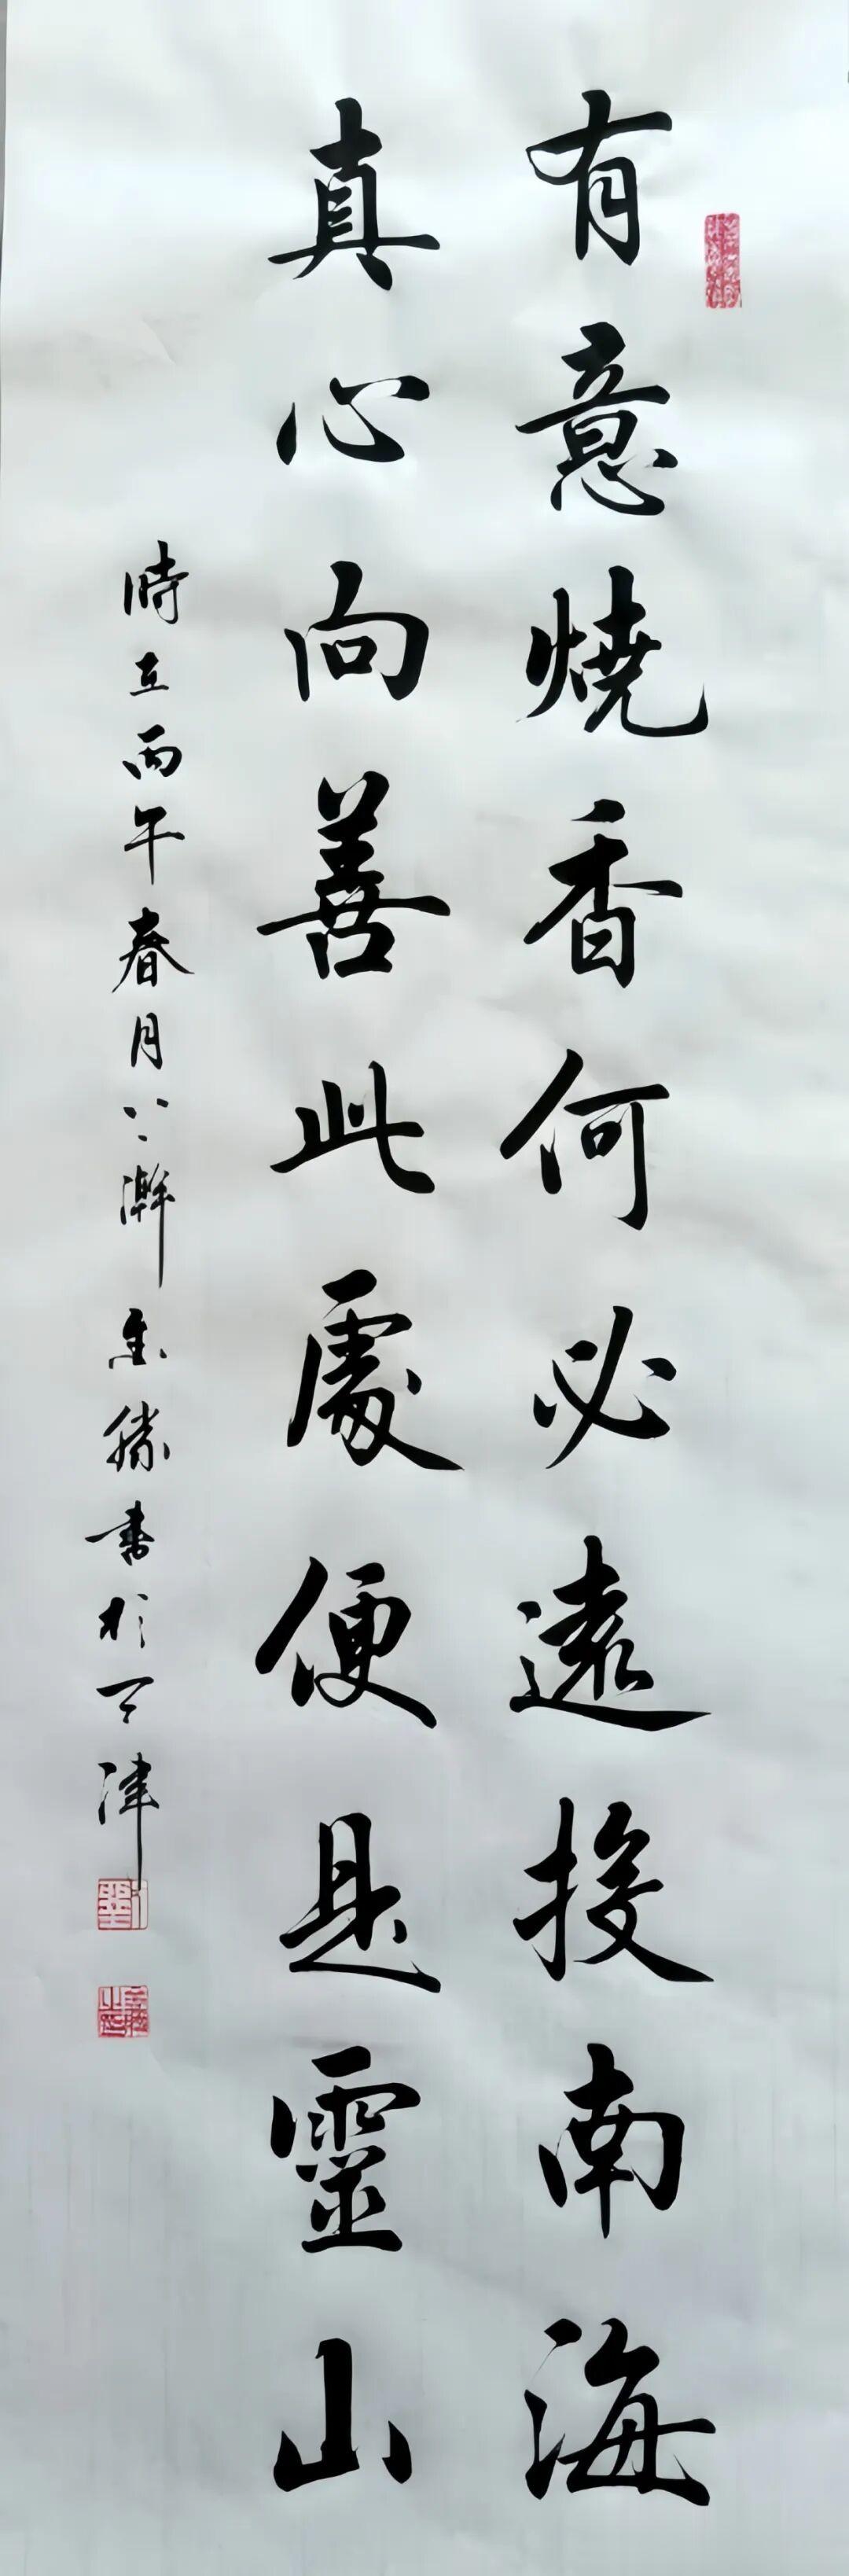 有意燒香何必遠投南海
真心向善此處便是靈山
時在丙午春月 書於天津